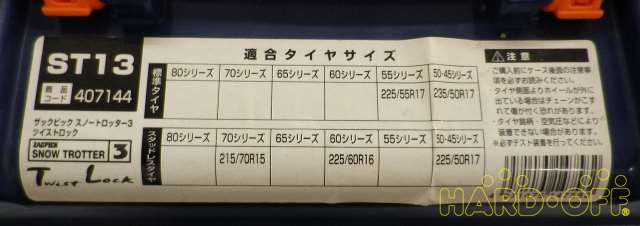 ST13
商品コード 407144
ザックピック スノートロッター3
ツイストロック
ZACPICK
SNOW TROTTER 3
Twist Lock
適合タイヤサイズ
標準タイヤ
80シリーズ 70シリーズ 65シリーズ 60シリーズ 55シリーズ 50-45シリーズ
225/55R17 235/50R17
スタッドレスタイヤ
80シリーズ 70シリーズ 65シリーズ 60シリーズ 55シリーズ 50-45シリーズ
215/70R15 225/60R16 225/50R17
⚠注意
・ご購入前にケース後面の注意事
項を必ずお読みください。
・タイヤ側面よりホイールが外に
出ている場合はチェーンがこす
れて傷が付く恐れがあります。
・タイヤ銘柄・空気圧などにより
装着できない場合があります。
※必ずテスト装着を行ってください。
HARD-OFF